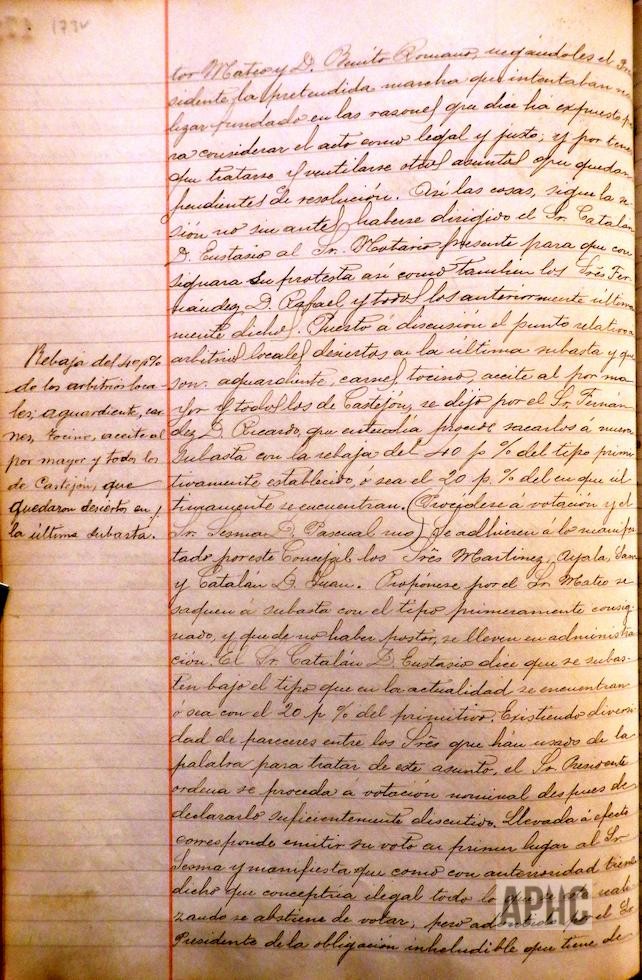 173v
tor Mateo y D. Benito Romano, negándoles el Pre
sidente la pretendida marcha que intentaban rea
lizar fundado en las razones que dice ha expuesto pa
ra considerar el acto como legal y justo; y por tener
que tratarse y ventilarse otros asuntos que quedan
pendientes de resolución. Así las cosas, sigue la se
sión no sin antes haberse dirigido el Sr. Catalán
D. Eustasio al Sr. Notario presente para que con
signara su protesta asi como tambien los Srês Fer
nández D. Rafael y todos los anteriormente última
mente dichos. Puesto á discusión el punto relativo
arbitrios locales desiertos en la última subasta y que
son: aguardiente, carnes, tocino, aceite al por ma
yor y todos los de Castejón, se dijo por el Sr. Fernán
dez D. Ricardo, que entendía procede sacarlos á nueva
subasta con la rebaja del 40 p % del tipo primi
tivamente establecido, ó sea el 20 p. % del en que úl
timamente se encuentran. (Procédese á votación y el
Sr. Sesma D. Pascual no) Se adhieren á lo manifes
tado por este Concejal los Srês Martinez, Ayala, Sanz
y Catalán D. Juan. Propónese por el Sr Mateo se
saquen á subasta con el tipo primeramente consig
nado, y que de no haber postor, se lleven en administra
ción. El Sr. Catalán D. Eustasio dice que se subas
ten bajo el tipo que en la actualidad se encuentran
ó sea con el 20 p % del primitivo. Existiendo diversi
dad de pareceres entre los Srês que hán usado de la
palabra para tratar de este asunto, el Sr. Presidente
ordena se proceda á votación nominal despues de
declararlo suficientemente discutido. Llevada á efecto
corresponde emitir su voto en primer lugar al Sr.
Sesma y manifiesta que como con anterioridad tiene
dicho que conceptúa ilegal todo lo que se está reali
zando se abstiene de votar; pero advertido por el Sr.
Presidente de la obligación inheludible que tiene de
Rebaja del 40 p %
de los arbitrios loca
les; aguardiente, car
nes, tocino, aceite al
por mayor y todos los
de Castejón, que
quedaron desiertos en
la última subasta.
APHC